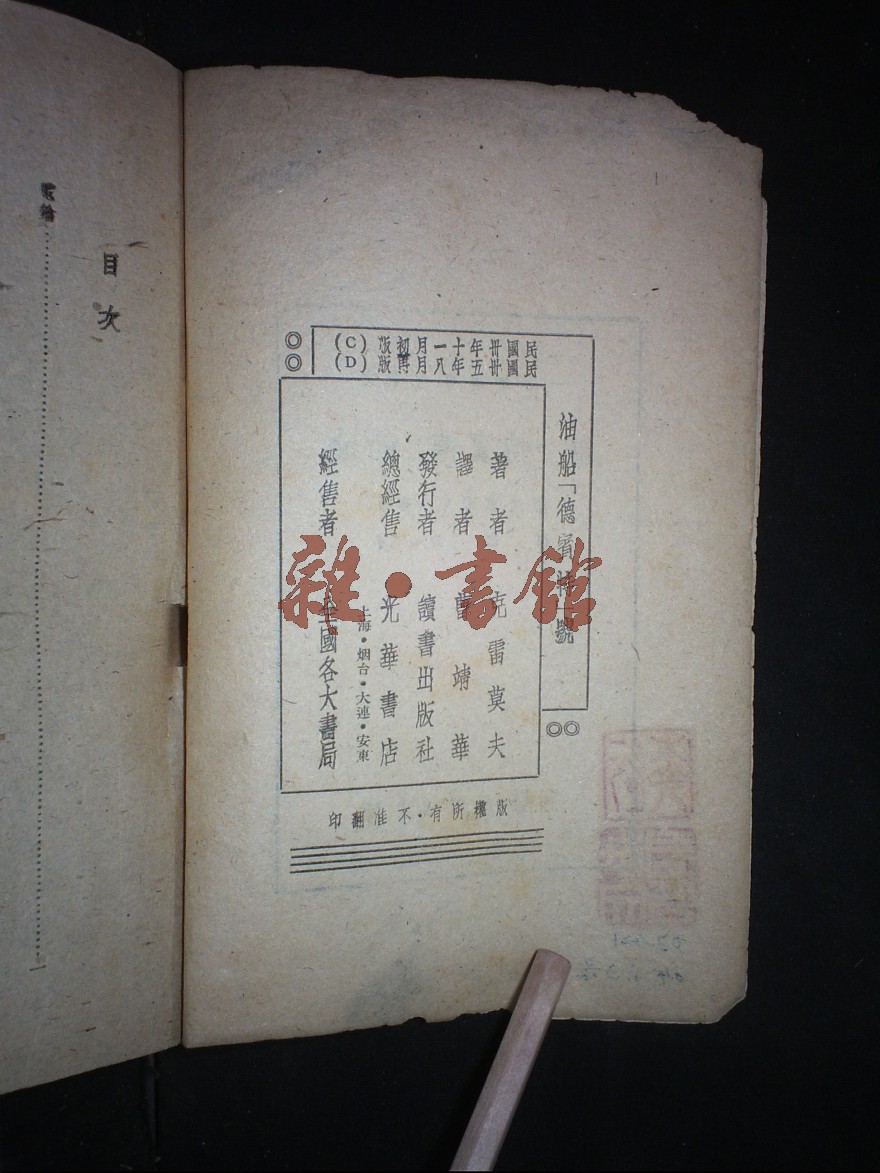 民國卅年十一月初版（C）
民國卅五年八月再版（D）
油船「德賓特」號
著者 克雷莫夫
譯者 曹靖華
發行者 讀書出版社
總經售 光華書店
上海·烟台·大連·安東
經售者 全國各大書局
版權所有·不准翻印
目次
雜·書館